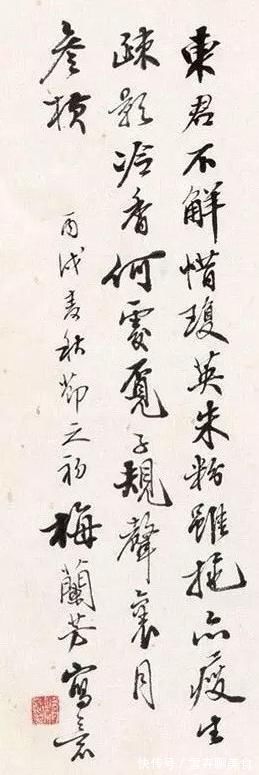 東君不解惜瓊英朱粉雖施亦瘦生
疎影冷香何處覓子規聲裏月
參横
丙戌麦秋節之初梅蘭芳寫意
快传号/聊美食